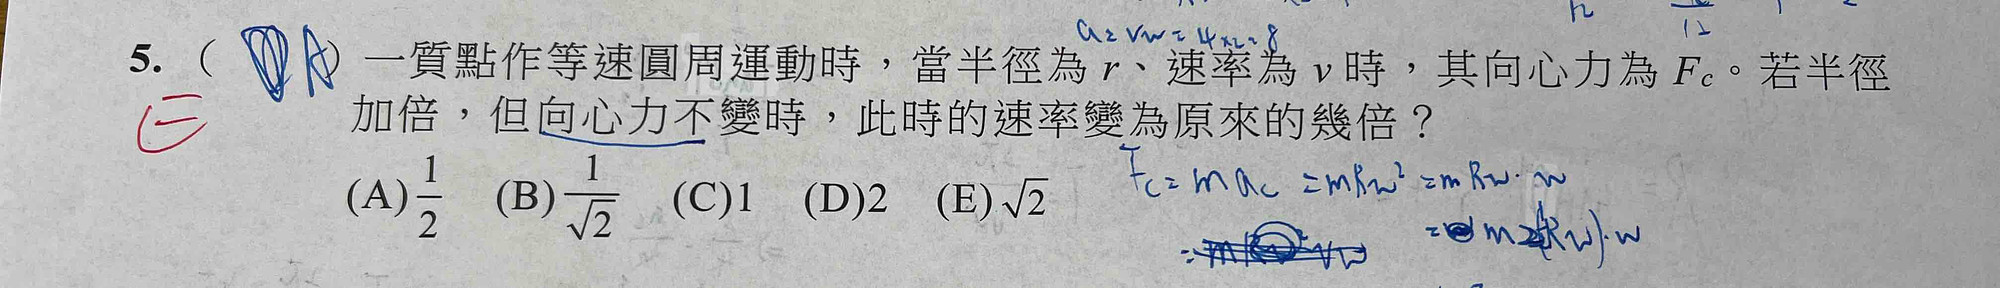 a = vw = 4×2 = 8
12
5. ( A ) 一質點作等速圓周運動時，當半徑為 r、速率為 v 時，其向心力為 Fc。若半徑
E
加倍，但向心力不變時，此時的速率變為原來的幾倍？
Fc = mac = mRw² = mRw·w
(A) 1/2 (B) 1/√2 (C)1 (D)2 (E) √2